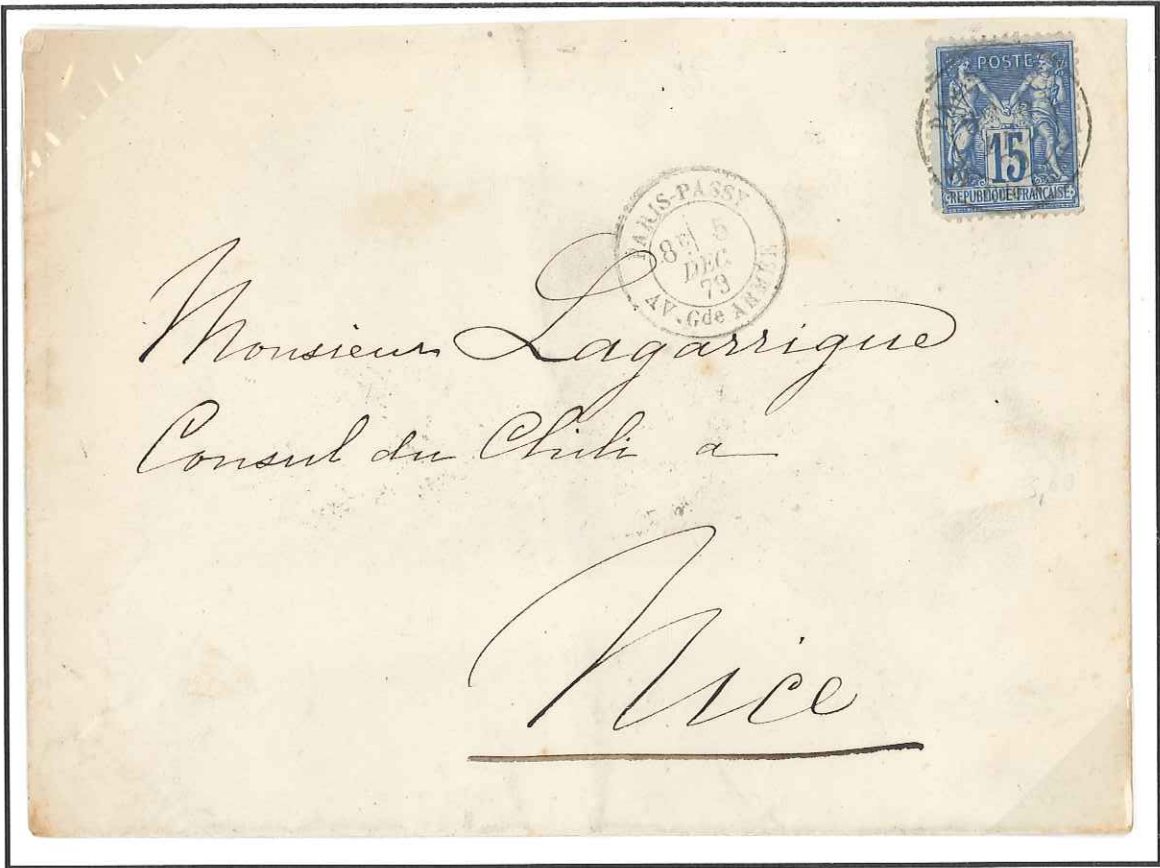 POSTE
15
REPUBLIQUE FRANÇAISE
PARIS-PASSY
8E 5
DEC.
79
AV. Gde ARMÉE
Monsieur Lagarrigue
Consul du Chili a
Nice